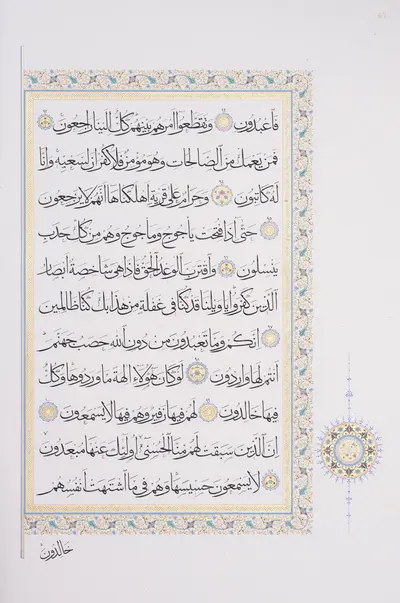 فَاعْبُدُونِ وَتَقَطَّعُوا أَمْرَهُمْ بَيْنَهُمْ كُلٌّ إِلَيْنَا رَاجِعُونَ
فَمَنْ يَعْمَلْ مِنَ الصَّالِحَاتِ وَهُوَ مُؤْمِنٌ فَلَا كُفْرَانَ لِسَعْيِهِ وَإِنَّا
لَهُ كَاتِبُونَ وَحَرَامٌ عَلَى قَرْيَةٍ أَهْلَكْنَاهَا أَنَّهُمْ لَا يَرْجِعُونَ
حَتَّى إِذَا فُتِحَتْ يَأْجُوجُ وَمَأْجُوجُ وَهُمْ مِنْ كُلِّ حَدَبٍ
يَنْسِلُونَ وَاقْتَرَبَ الْوَعْدُ الْحَقُّ فَإِذَا هِيَ شَاخِصَةٌ أَبْصَارُ
الَّذِينَ كَفَرُوا يَا وَيْلَنَا قَدْ كُنَّا فِي غَفْلَةٍ مِنْ هَذَا بَلْ كُنَّا ظَالِمِينَ
إِنَّكُمْ وَمَا تَعْبُدُونَ مِنْ دُونِ اللَّهِ حَصَبُ جَهَنَّمَ
أَنْتُمْ لَهَا وَارِدُونَ لَوْ كَانَ هَؤُلَاءِ آلِهَةً مَا وَرَدُوهَا وَكُلٌّ
فِيهَا خَالِدُونَ لَهُمْ فِيهَا زَفِيرٌ وَهُمْ فِيهَا لَا يَسْمَعُونَ
إِنَّ الَّذِينَ سَبَقَتْ لَهُمْ مِنَّا الْحُسْنَى أُولَئِكَ عَنْهَا مُبْعَدُونَ
لَا يَسْمَعُونَ حَسِيسَهَا وَهُمْ فِي مَا اشْتَهَتْ أَنْفُسُهُمْ
خَالِدُونَ